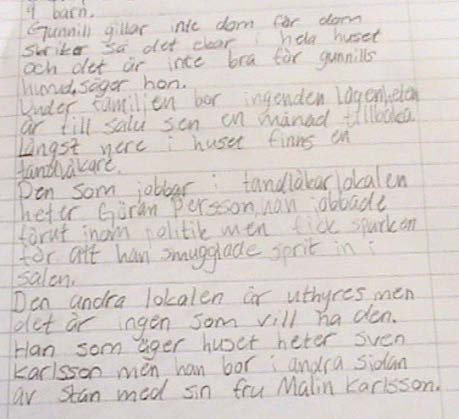 9 barn.
Gunnill gillar inte dom för dom
skriker så det ekar i hela huset
och det är inte bra för gunnills
hund, säger hon.
Under familjen bor ingenden lägenheten
är till salu sen en månad tillbaka
Längst nere i huset finns en
tandläkare.
Den som jobbar i tandläkarlokalen
heter Göran Persson, han jobbade
förut inom politik men fick sparken
för att han smugglade sprit in i
salen.
Den andra lokalen är uthyres men
det är ingen som vill ha den.
Han som äger huset heter Sven
Karlsson men han bor i andra sidan
av stan med sin fru Malin Karlsson.